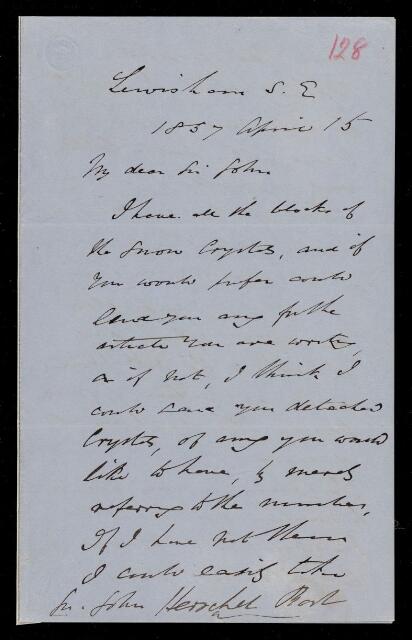 128
Lewisham S. E
1857 April 15
My dear Sir John
I have all the blocks of
the Snow Crystals, and if
you would prefer could
lend you any for the
article you are writing
or if not, I think I
could send you detached
Crystals, of any you would
like to have, by merely
referring to the number,
If I have not them
I could easily take
Sir John Herschel Bart